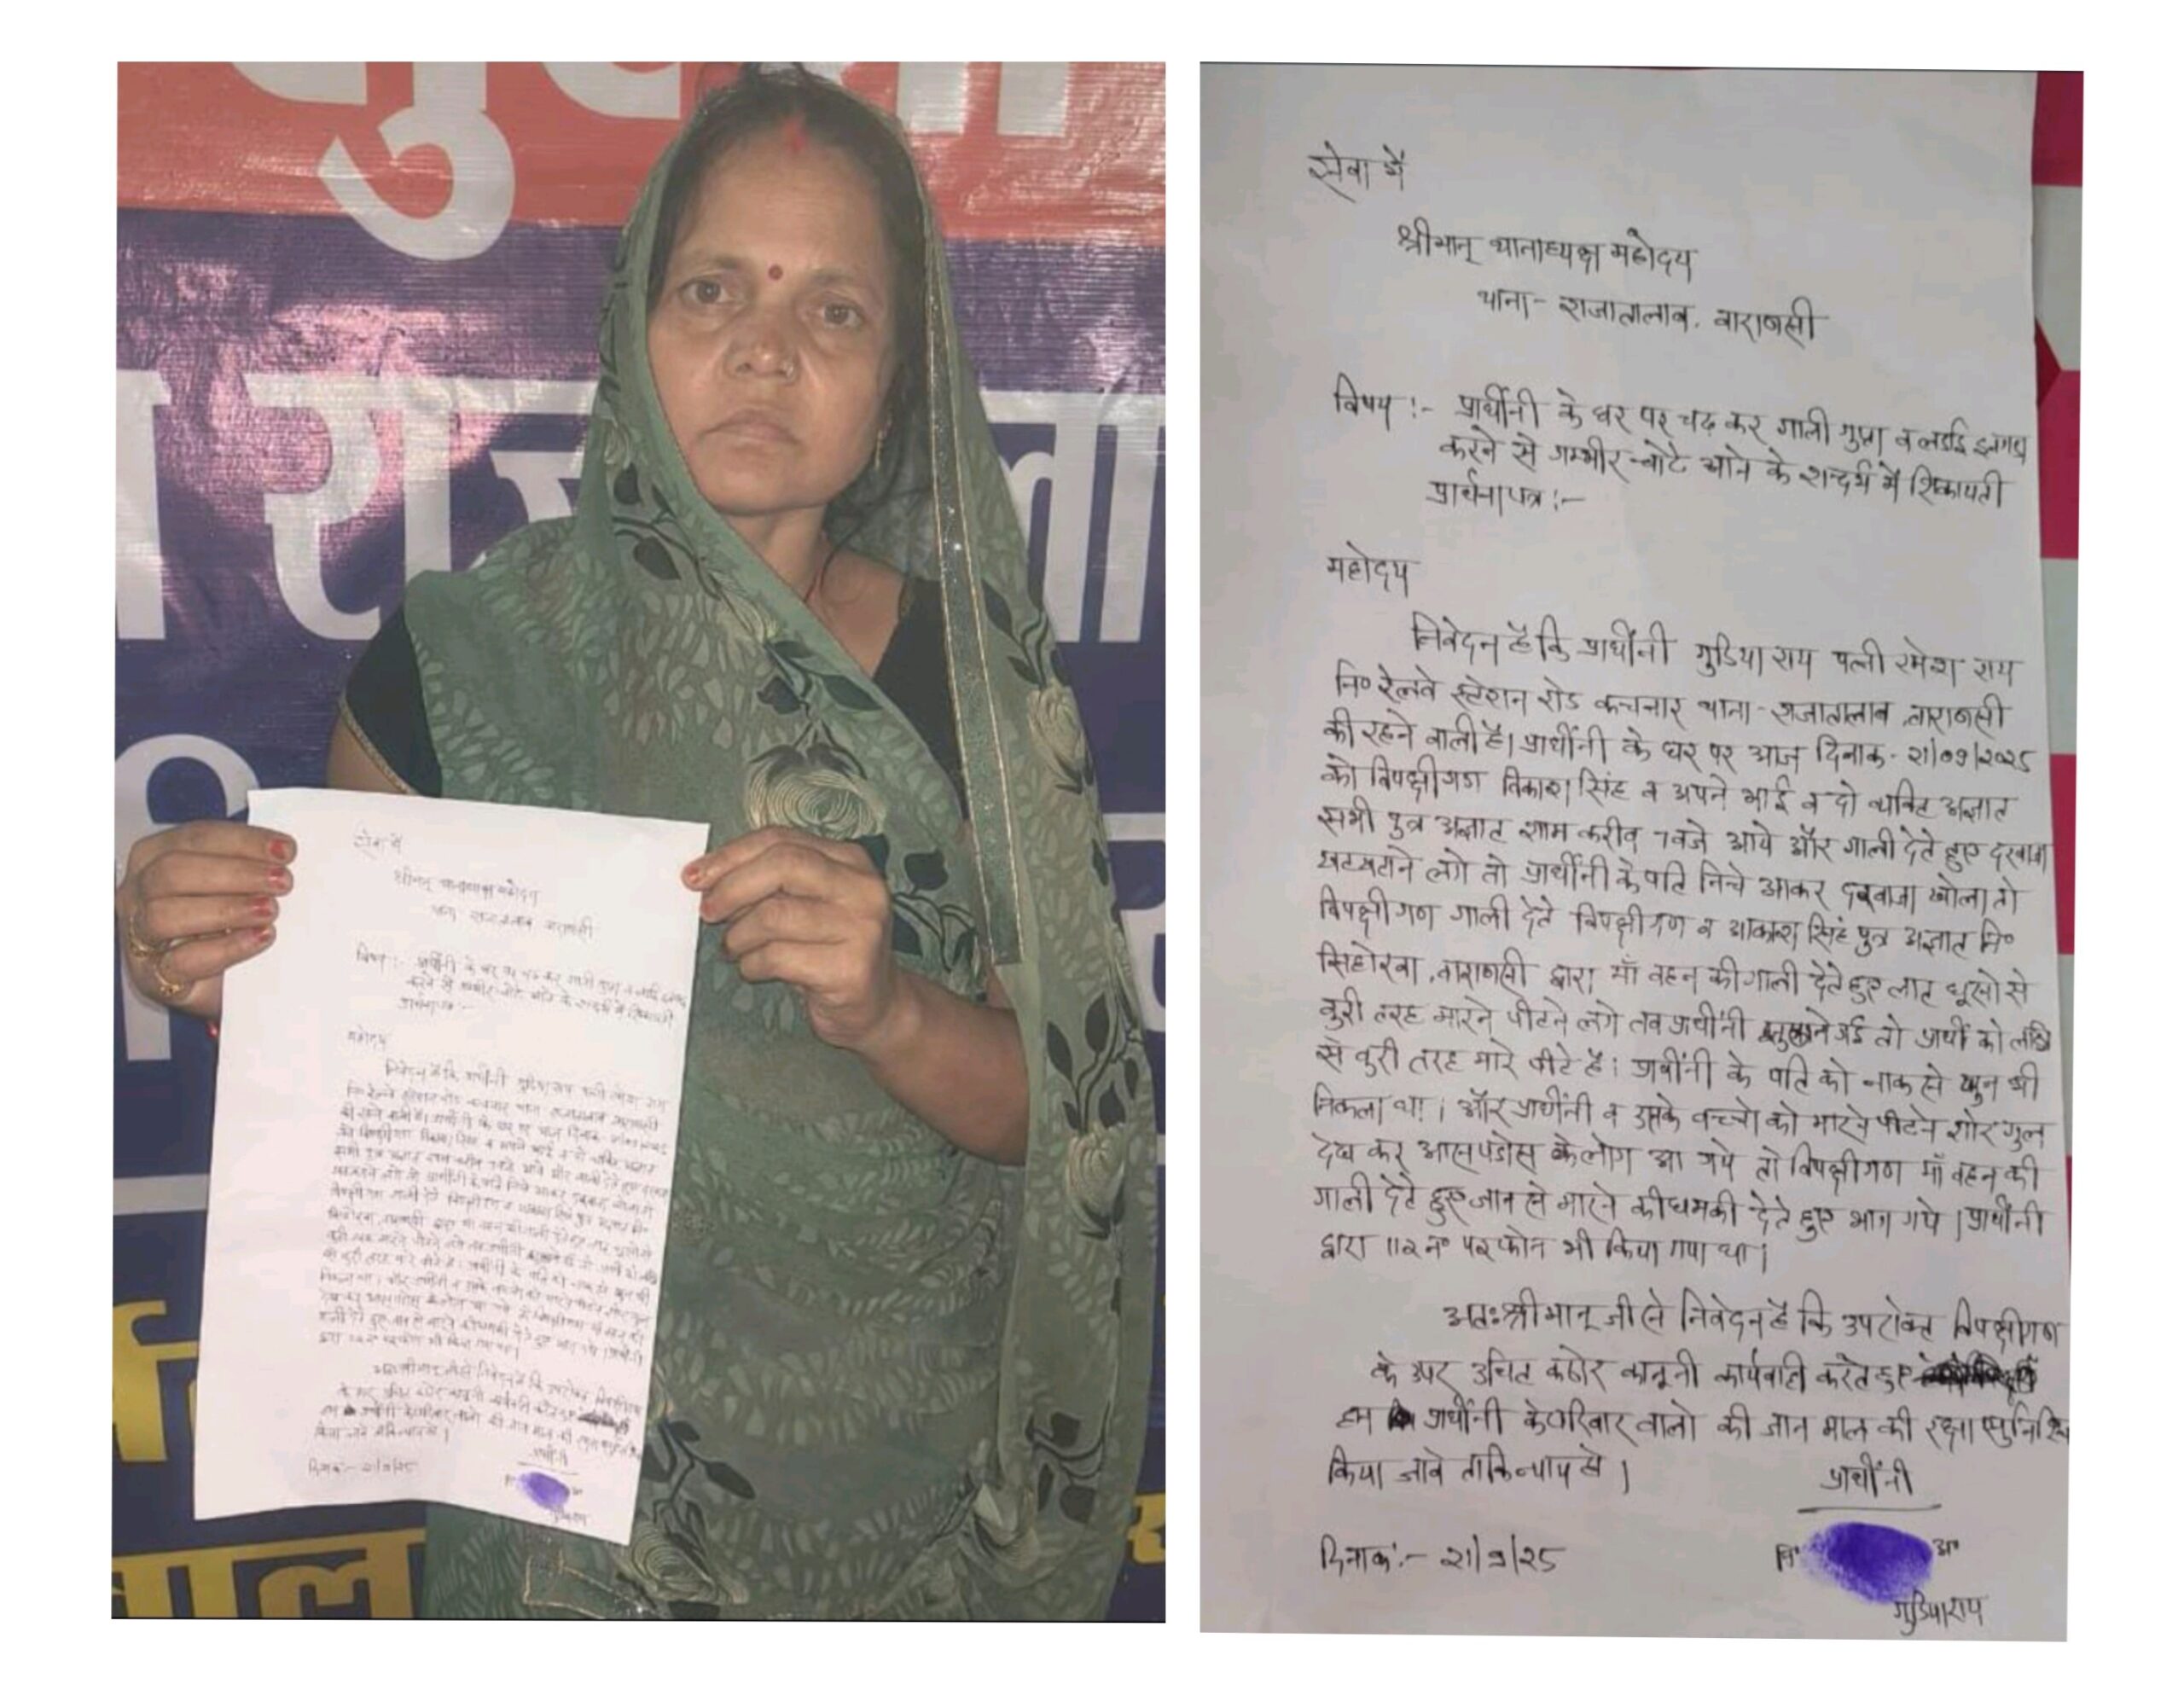 सेवा में
श्रीमान् थानाध्यक्ष महोदय
थाना- राजातालाब, वाराणसी
विषय :- प्रार्थीनी के घर पर चढ़ कर गाली गुप्ता व लडाई झगड़ा
करने से गम्भीर चोटे आने के सन्दर्भ में शिकायती
प्रार्थनापत्र :-
महोदय
निवेदन है कि प्रार्थीनी गुडिया राय पत्नी रमेश राय
नि० रेलवे स्टेशन रोड कचनार थाना- राजातालाब वाराणसी
की रहने वाली है। प्रार्थीनी के घर पर आज दिनाक- २१/०९/२०२५
को विपक्षीगण विकाश सिंह व अपने भाई व दो व्यक्ति अज्ञात
सभी पुत्र अज्ञात शाम करीब ७ बजे आये और गाली देते हुए दरवाजा
खटखटाने लगे तो प्रार्थीनी के पति निचे आकर दरवाजा खोला तो
विपक्षीगण गाली देते विपक्षीगण व आकाश सिंह पुत्र अज्ञात नि०
सिहोरवा, वाराणसी द्वारा माँ बहन की गाली देते हुए लात घूसो से
बुरी तरह मारने पीटने लगे तब प्रार्थीनी गई तो प्रार्थी को
से बुरी तरह मारे पीटे है। प्रार्थीनी के पति को नाक से खुन भी
निकला था। और प्रार्थीनी व उसके बच्चो को मारने पीटने शोर गुल
देख कर आसपडोस के लोग आ गये तो विपक्षीगण माँ बहन की
गाली देते हुए जान से मारने की धमकी देते हुए भाग गये। प्रार्थीनी
द्वारा ११२ न० पर फोन भी किया गया था।
अतः श्रीमान् जी से निवेदन है कि उपरोक्त विपक्षीगण
के उपर उचित कठोर कानूनी कार्यवाही करते हुए
हम प्रार्थीनी के परिवार वालो की जान माल की रक्षा सुनिश्चि
किया जावे ताकि न्याय हो।
प्रार्थीनी
दिनाक:- २१/९/२५
नि० अ०
गुडिया राय